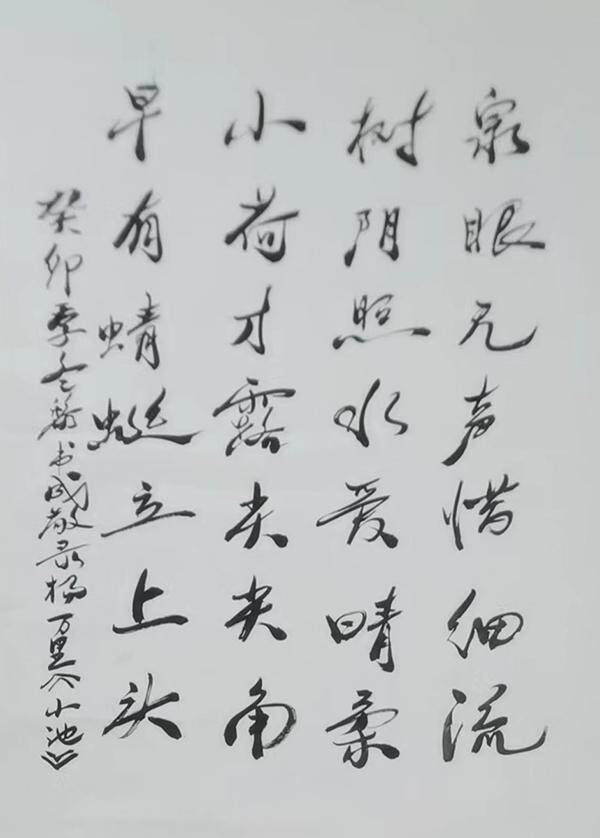 泉眼无声惜细流
树阴照水爱晴柔
小荷才露尖尖角
早有蜻蜓立上头
癸卯季冬 书成敬录杨万里《小池》